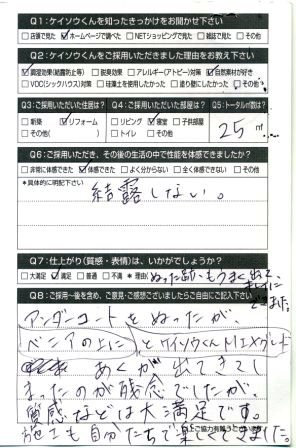 Q1：ケイソウくんを知ったきっかけをお聞かせ下さい
□店頭で見た ☑ホームページで調べた □NETショッピングで見た □雑誌で見た □その他
Q2：ケイソウくんをご採用いただきました理由をお教え下さい
☑調湿効果(結露防止等) □脱臭効果 □アレルギー(アトピー)対策 ☑自然素材が好き
□VOC(シックハウス)対策 □珪藻土を使用したかった □塗り壁にしたかった □その他
Q3：ご採用いただいた住居は？
□新築 ☑リフォーム
□その他( )
Q4：ご採用いただいた部屋は？
□リビング ☑寝室 □子供部屋
□トイレ □その他
Q5：トータル㎡数は？
25㎡
Q6：ご採用いただき、その後の生活の中で性能を体感できましたか？
□非常に体感できた ☑体感できた □よく分からない □全く体感できない □その他
＊具体的に明記下さい
結露しない。
Q7：仕上がり(質感・表情)は、いかがでしょうか？
□大満足 ☑満足 □普通 □不満 ＊理由(ぬった跡もうまく出て
Q8：ご採用〜後を含め、ご意見・ご感想でございましたらご自由にご記入下さい
アンダーコートをぬったが、
ベニアの上に とケイソウくん
あくが出てきてし
まったのが残念でしたが、
質感などは大満足です。
施工も自分たちで楽しくできました
ご協力有難うございました